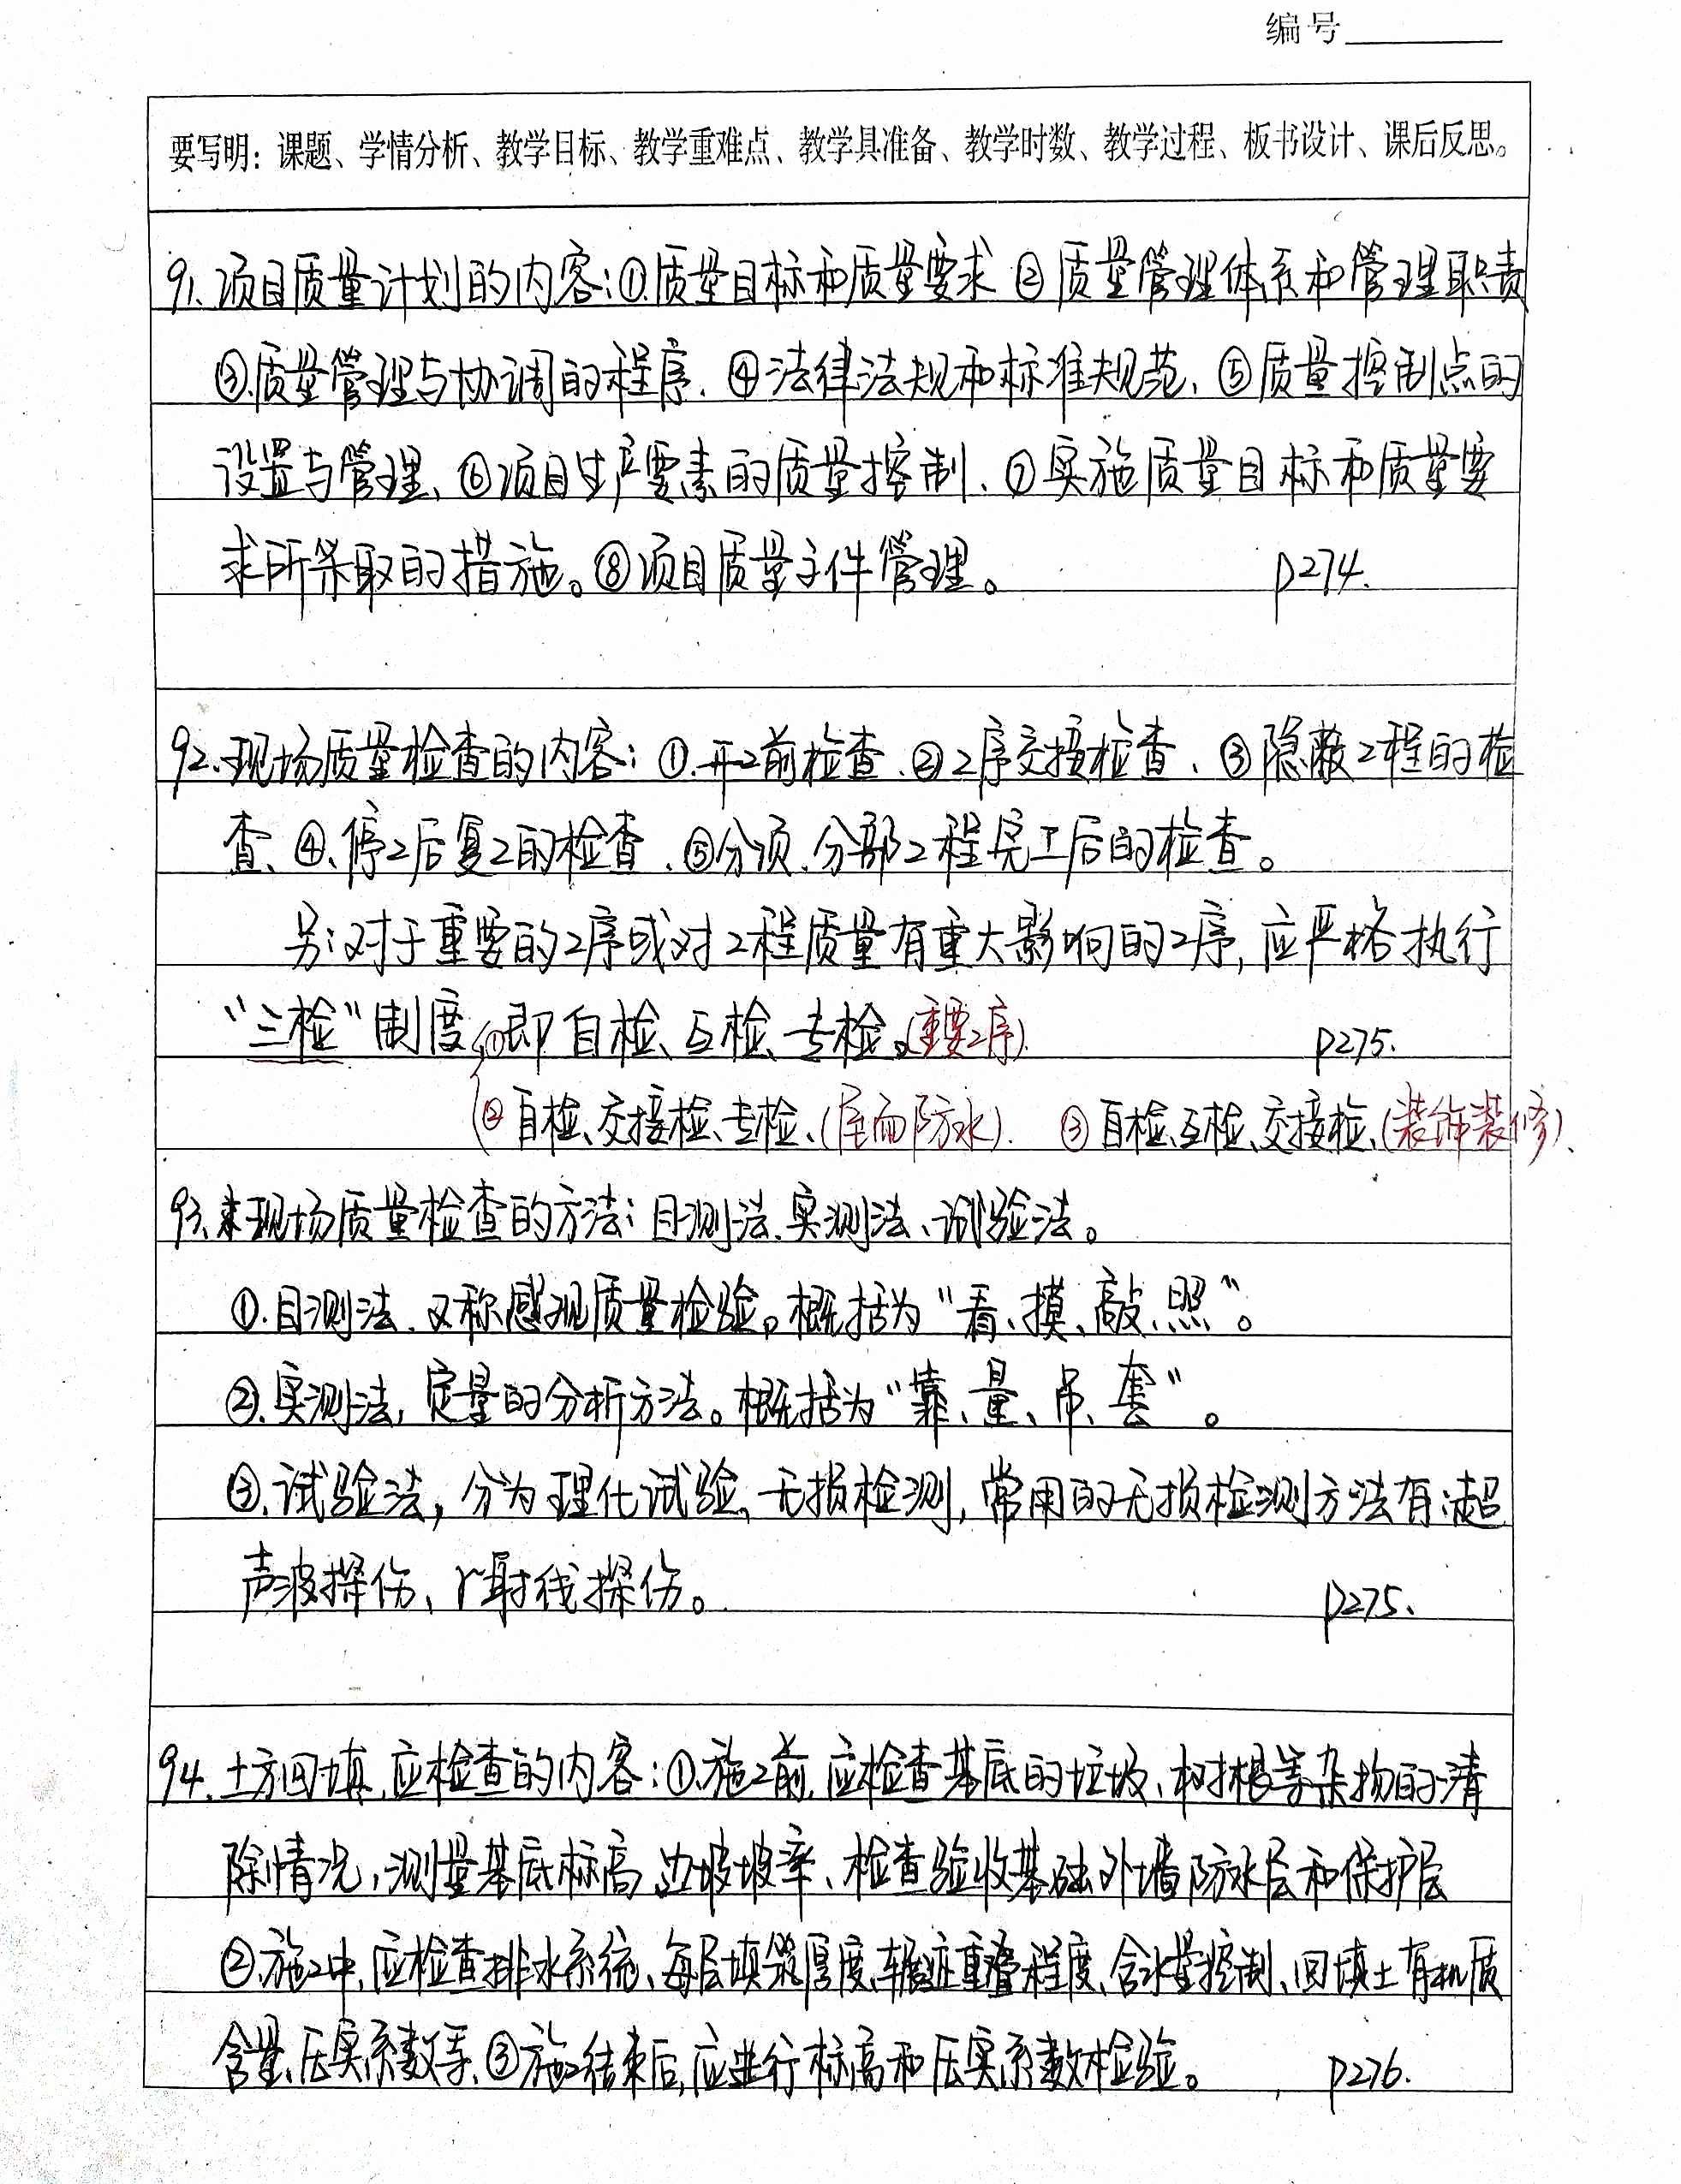 编号
要写明：课题、学情分析、教学目标、教学重难点、教学具准备、教学时数、教学过程、板书设计、课后反思。
91、项目质量计划的内容：①.质量目标和质量要求 ②质量管理体系和管理职责
③.质量管理与协调的程序、④法律法规和标准规范、⑤质量控制点的
设置与管理、⑥项目生产要素的质量控制、⑦实施质量目标和质量要
求所采取的措施。⑧项目质量文件管理。 P274.
92、现场质量检查的内容：①.开工前检查、②工序交接检查、③隐蔽工程的检
查、④、停工后复工的检查、⑤分项、分部工程完工后的检查。
另：对于重要的工序或对工程质量有重大影响的工序，应严格执行
“三检”制度，①即自检、互检、专检。(重要工序). P275.
② 自检、交接检、专检、(屋面防水). ③ 自检、互检、交接检、(装饰装修)、
93、现场质量检查的方法：目测法、实测法、试验法。
①.目测法、又称感观质量检验。概括为“看、摸、敲、照”。
②、实测法，定量的分析方法。概括为“靠、量、吊、套”。
③、试验法，分为理化试验、无损检测，常用的无损检测方法有：超
声波探伤、γ射线探伤。 P275、
94、土方回填，应检查的内容：①、施工前，应检查基底的垃圾、树根等杂物的清
除情况，测量基底标高、边坡坡率、检查验收基础外墙防水层和保护层
②、施工中，应检查排水系统、每层填筑厚度、辗迹重叠程度、含水量控制、回填土有机质
含量、压实系数等、③施工结束后，应进行标高和压实系数检验。 P276.